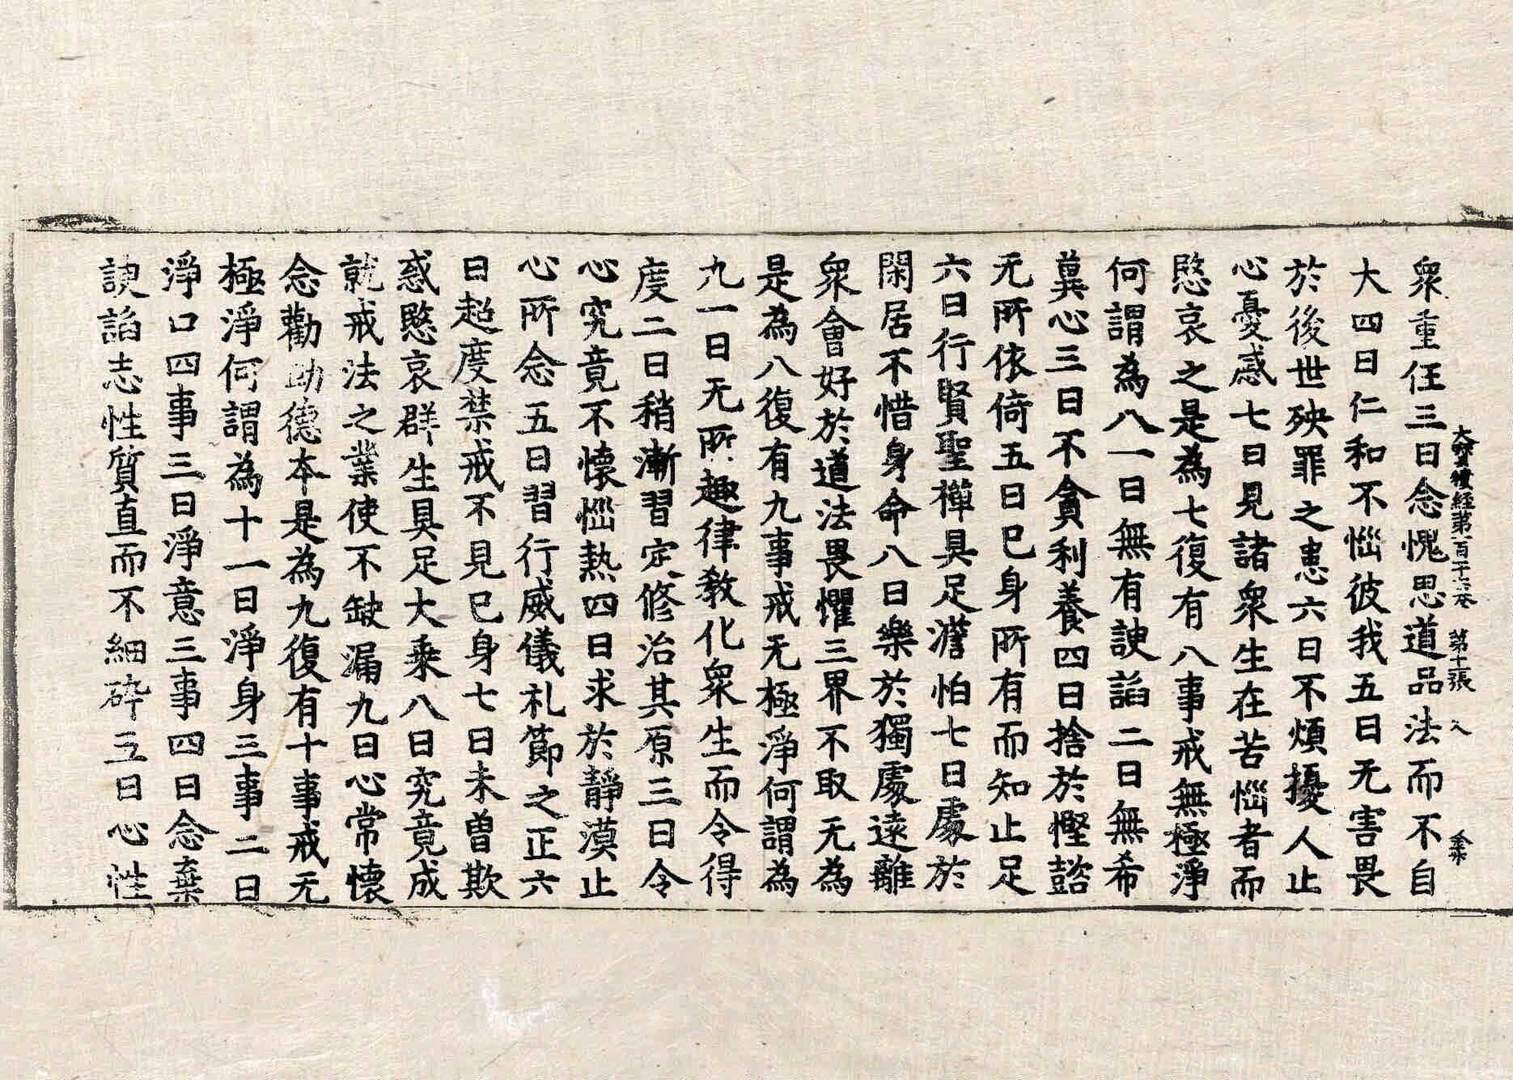 大寶積經第百十卷 第十張 入
衆重任三曰念愧思道品法而不自
大四曰仁和不惱彼我五曰无害畏
於後世殃罪之患六曰不煩擾人止
心憂慼七曰見諸衆生在苦惱者而
愍哀之是為七復有八事戒無極淨
何謂為八一曰無有諛諂二曰無希
冀心三曰不貪利養四曰捨於慳谽
无所依倚五曰己身所有而知止足
六曰行賢聖禪具足澹怕七曰處於
閑居不惜身命八曰樂於獨處遠離
衆會好於道法畏懼三界不取无為
是為八復有九事戒无極淨何謂為
九一曰无所趣律教化衆生而令得
度二曰稍漸習定修治其原三曰令
心究竟不懷惱熱四曰求於靜漠止
心所念五曰習行威儀礼節之正六
曰超度禁戒不見己身七曰未曾欺
惑愍哀群生具足大乘八曰究竟成
就戒法之業使不缺漏九曰心常懷
念勸助德本是為九復有十事戒无
極淨何謂為十一曰淨身三事二曰
淨口四事三曰淨意三事四曰念棄
諛諂志性質直而不細碎五曰心性